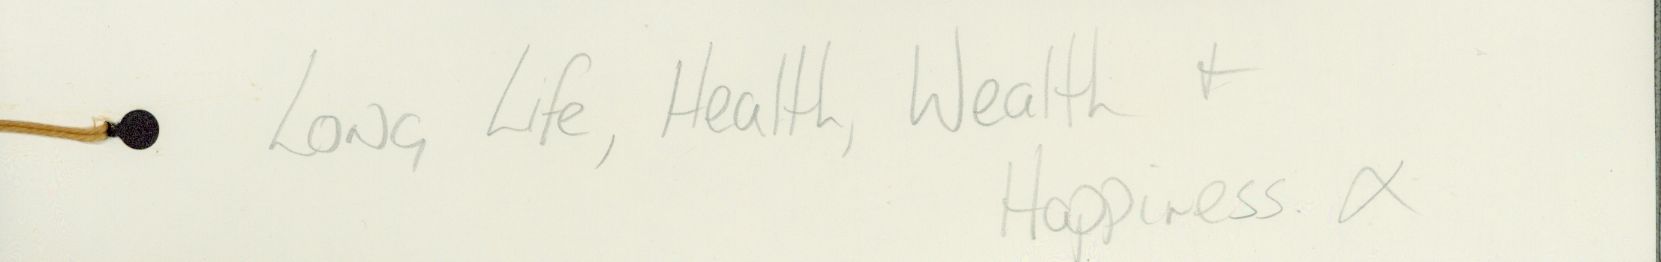 Long Life, Health, Wealth +
Happiness. x